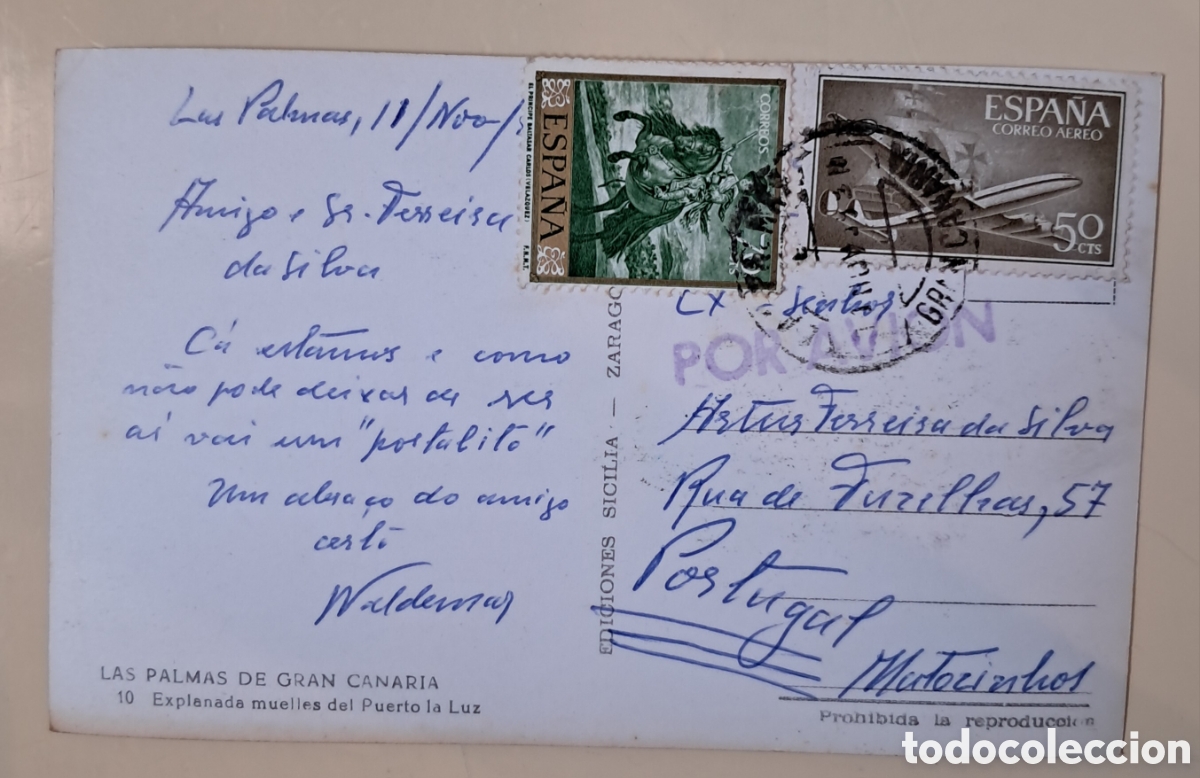 Las Palmas, 11/Nov/
Amigo e Sr. Ferreira
da Silva
Cá estamos e como
não pode deixar de ser
aí vai um "postalito"
Um abraço do amigo
certo
Waldemar
LAS PALMAS DE GRAN CANARIA
10 Explanada muelles del Puerto la Luz
EDICIONES SICILIA — ZARAGO
CORREOS
ESPAÑA
EL PRINCIPE BALTASAR CARLOS (VELAZQUEZ)
F.N.M.T.
ESPAÑA
CORREO AEREO
50
CTS
GRAN CANARIA
Senhor
POR AVION
Artur Ferreira da Silva
Rua de 57
Portugal
Matosinhos
Prohibida la reproduccion
todocoleccion